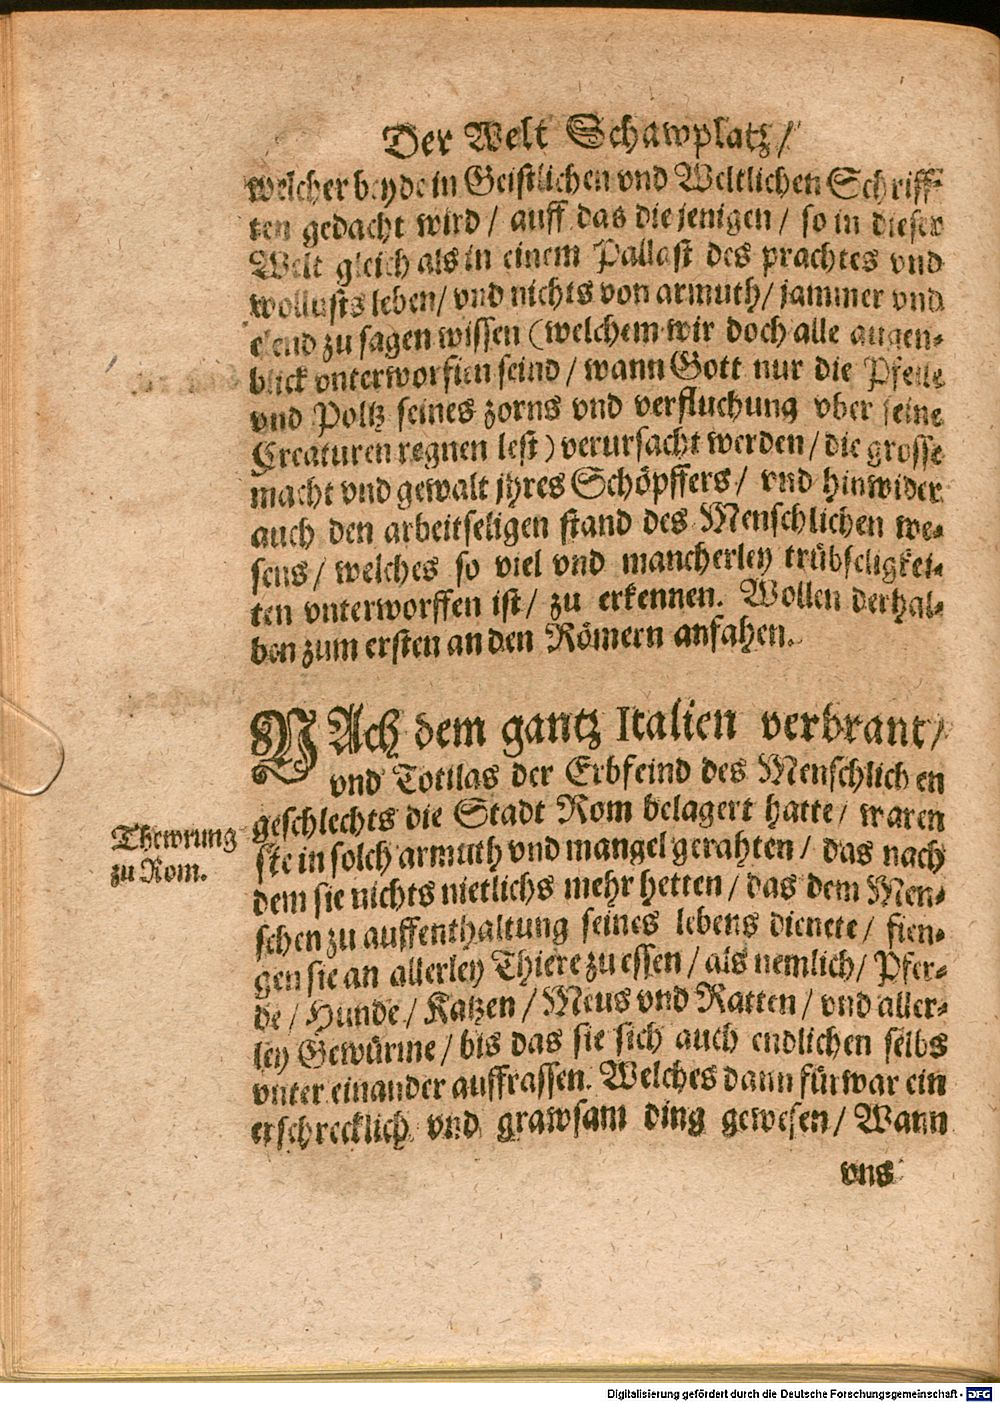 Der Welt Schawplatz/
welcher beyde in Geistlichen vnd Weltlichen Schriff-
ten gedacht wird / auff das die jenigen / so in dieser
Welt gleich als in einem Pallast des prachtes vnd
wollusts leben / vnd nichts von armuth / jammer vnd
elend zu sagen wissen (welchem wir doch alle augen-
blick vnterworffen seind / wann Gott nur die Pfeile
vnd Poltz seines zorns vnd verfluchung vber seine
Creaturen regnen lest) verursacht werden / die grosse
macht vnd gewalt jhres Schöpffers / vnd hinwider
auch den arbeitseligen stand des Menschlichen we-
sens / welches so viel vnd mancherley trübseligkei-
ten vnterworffen ist / zu erkennen. Wollen derhal-
ben zum ersten an den Römern anfahen.
NAch dem gantz Italien verbrant /
vnd Totilas der Erbfeind des Menschlichen
geschlechts die Stadt Rom belagert hatte / waren
Thewrung
zu Rom.
sie in solch armuth vnd mangel gerahten / das nach
dem sie nichts nietlichs mehr hetten / das dem Men-
schen zu auffenthaltung seines lebens dienete / fien-
gen sie an allerley Thiere zu essen / als nemlich / Pfer-
de / Hunde / Katzen / Meus vnd Ratten / vnd aller-
ley Gewürme / bis das sie sich auch endlichen selbs
vnter einander auffrassen. Welches dann fürwar ein
erschrecklich vnd grawsam ding gewesen / Wann
vns
Digitalisierung gefördert durch die Deutsche Forschungsgemeinschaft - DFG